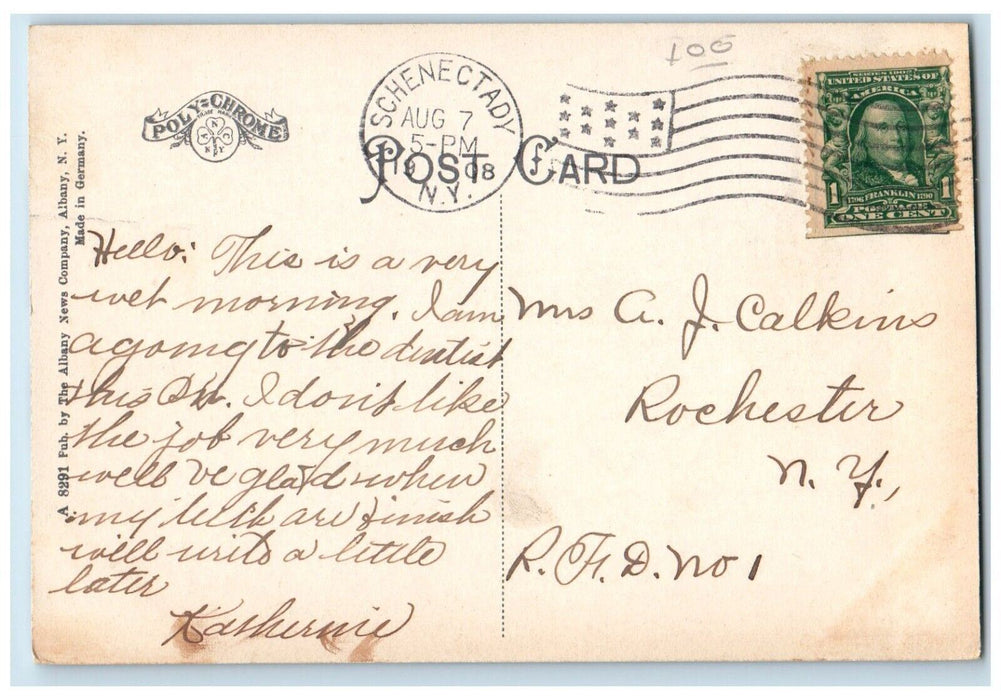 100
POLY-CHROME
SCHENECTADY
AUG 7
5-PM
1908
N.Y.
POST CARD
SERIES 1902
UNITED STATES OF
AMERICA
1 1
1706 FRANKLIN 1790
POSTAGE
ONE CENT
A 8291 Pub. by The Albany News Company, Albany, N. Y.
Made in Germany.
Hello: This is a very
wet morning. I am
agoing to the dentist
this P.M. I don't like
the job very much
will be glad when
my teeth are finish
will write a little
later
Katherine
Mrs A. J. Calkins
Rochester
N. Y.,
R. F. D. No 1